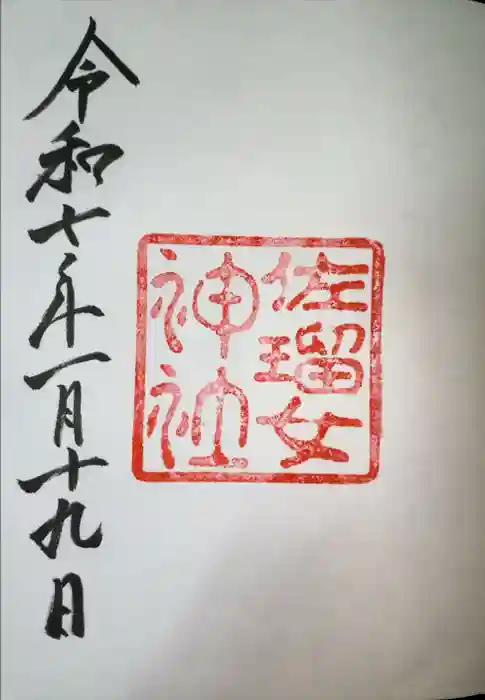 佐瑠女
神社
令和七年一月十九日